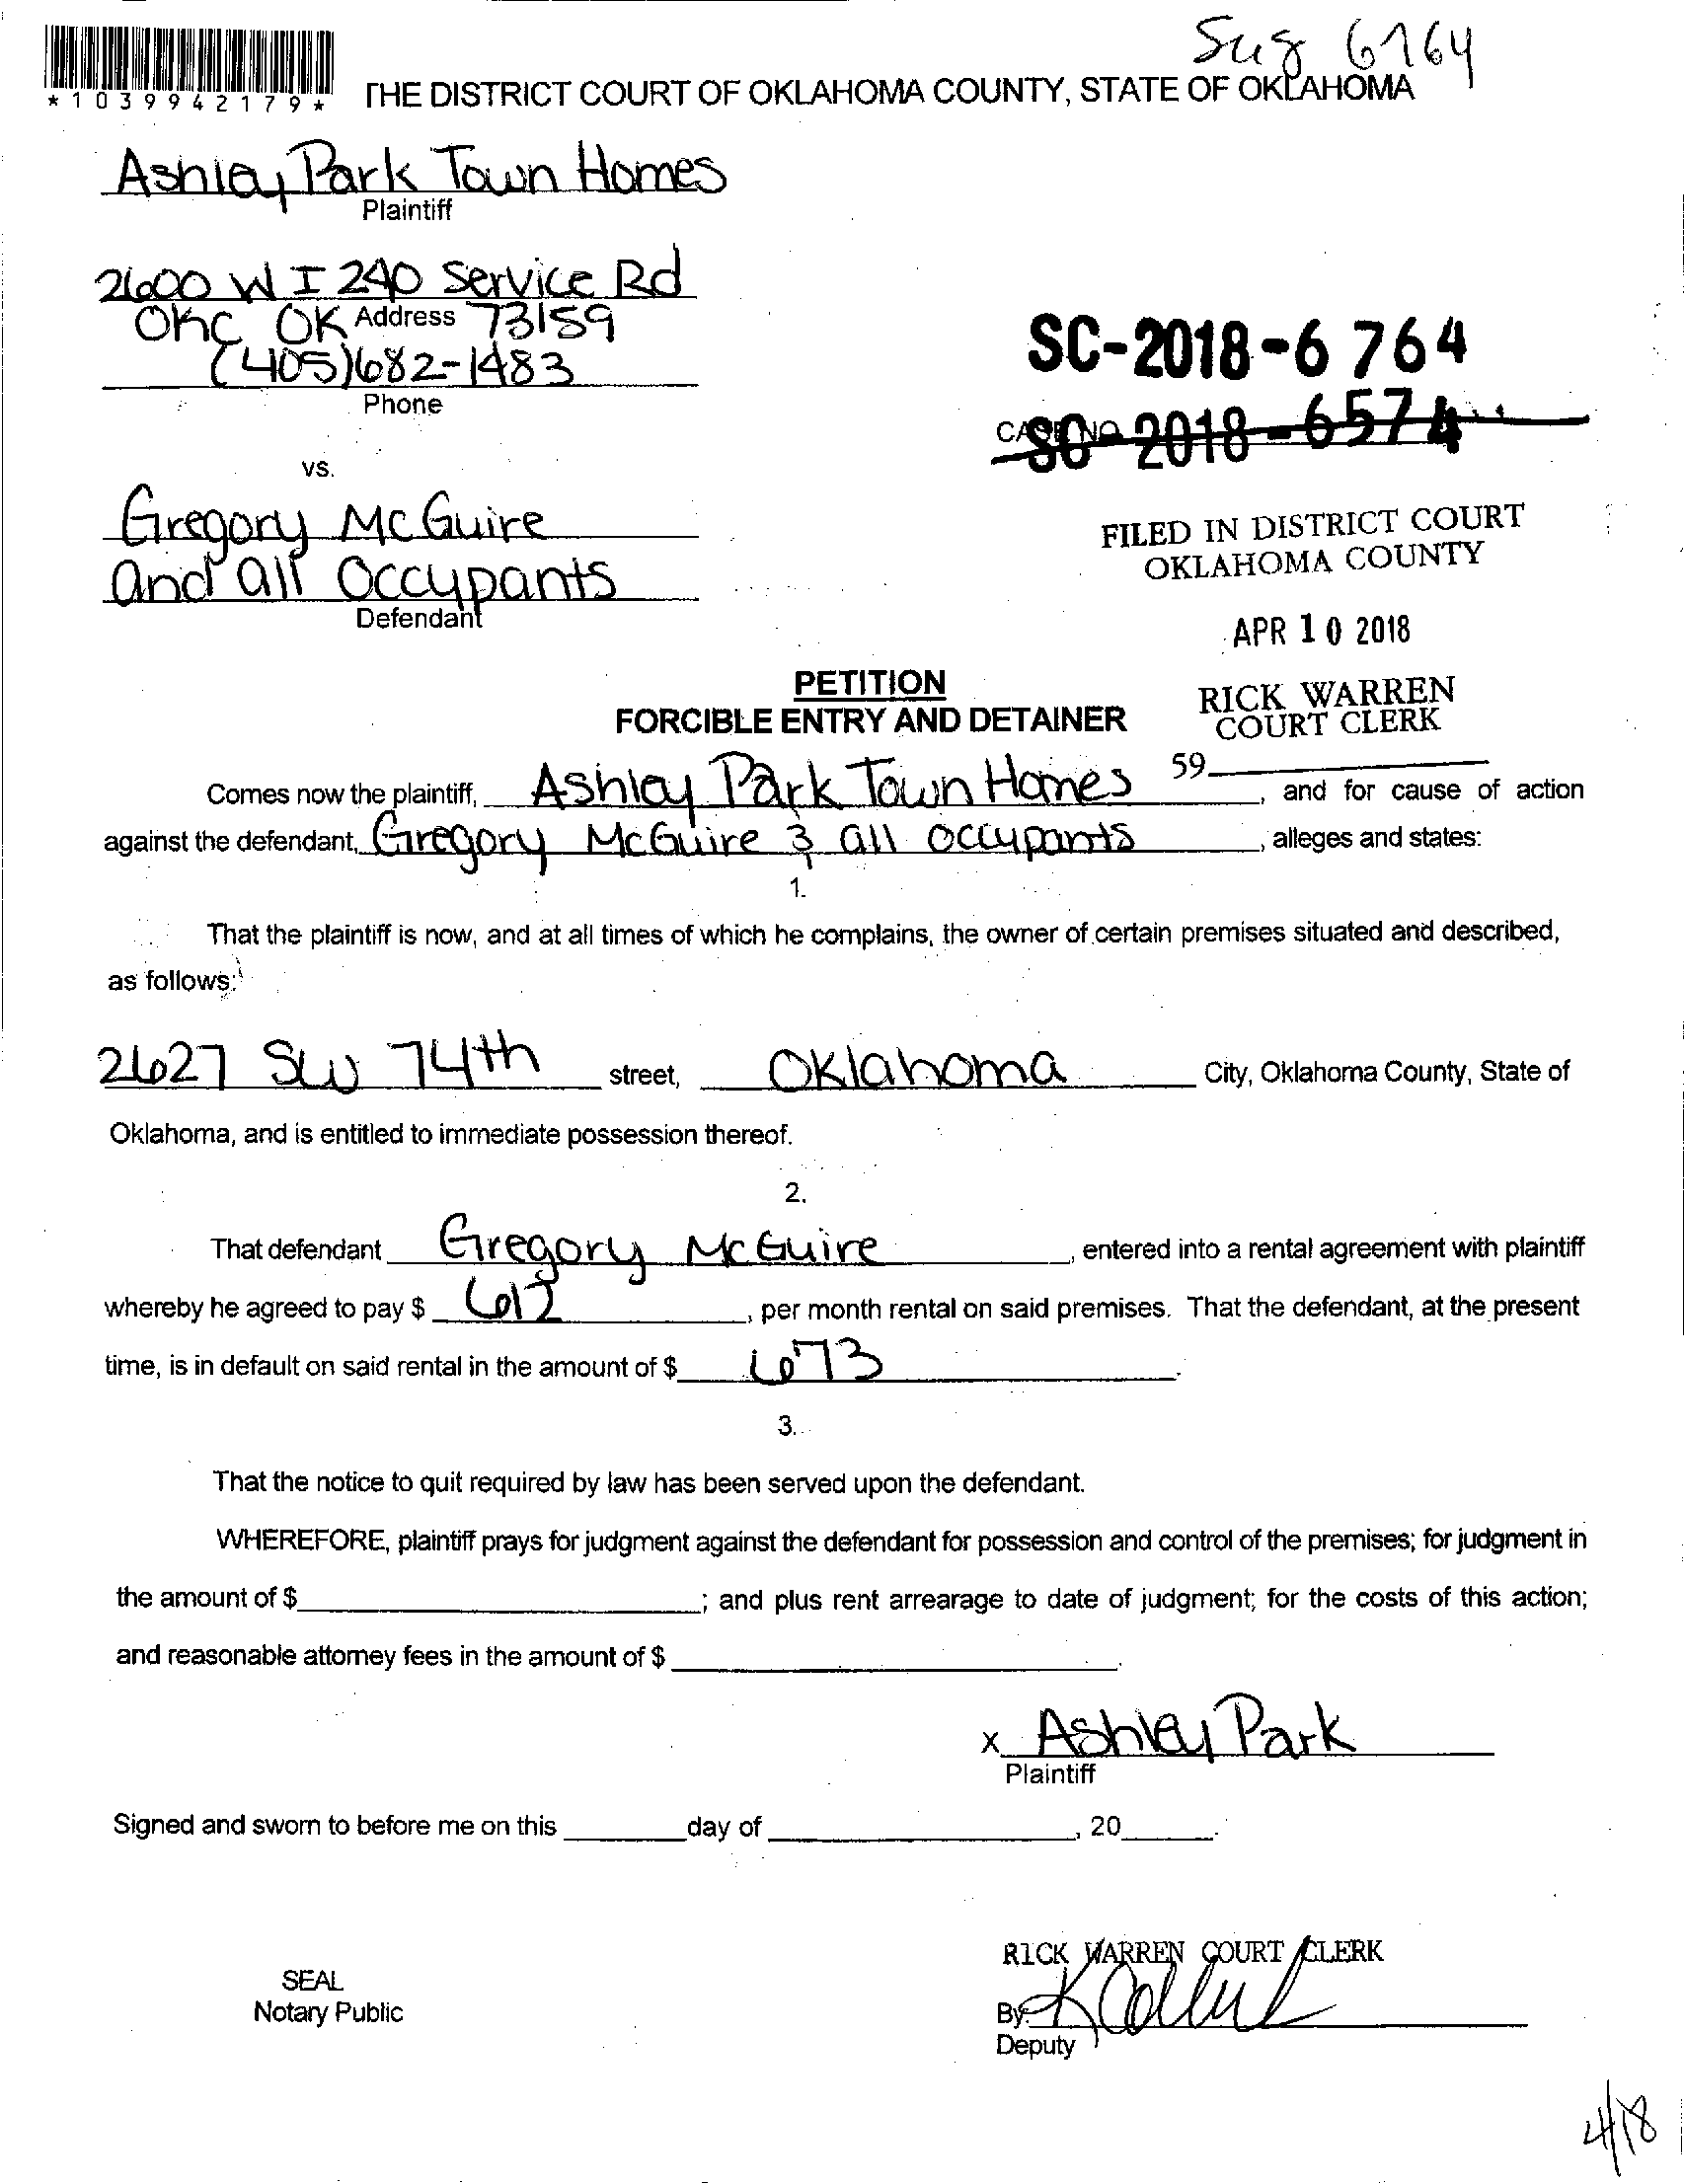 6764
*1039942179*
THE DISTRICT COURT OF OKLAHOMA COUNTY, STATE OF OKLAHOMA
Ashley Park Town Homes
Plaintiff
2600 W I 240 Service Rd
OKC OK Address 73159
(405)682-1483
Phone
SC-2018-6 764
CASE NO. SC-2018-6574
vs.
Gregory McGuire
and all Occupants
Defendant
FILED IN DISTRICT COURT
OKLAHOMA COUNTY
APR 10 2018
RICK WARREN
COURT CLERK
59
PETITION
FORCIBLE ENTRY AND DETAINER
Comes now the plaintiff, Ashley Park Town Homes, and for cause of action
against the defendant, Gregory McGuire & all occupants, alleges and states:
1.
That the plaintiff is now, and at all times of which he complains, the owner of certain premises situated and described,
as follows:
2627 SW 74th street, Oklahoma City, Oklahoma County, State of
Oklahoma, and is entitled to immediate possession thereof.
2.
That defendant Gregory McGuire, entered into a rental agreement with plaintiff
whereby he agreed to pay $ 612, per month rental on said premises. That the defendant, at the present
time, is in default on said rental in the amount of $ 673.
3.
That the notice to quit required by law has been served upon the defendant.
WHEREFORE, plaintiff prays for judgment against the defendant for possession and control of the premises; for judgment in
the amount of $ ; and plus rent arrearage to date of judgment; for the costs of this action;
and reasonable attorney fees in the amount of $ .
x Ashley Park
Plaintiff
Signed and sworn to before me on this day of , 20 .
RICK WARREN COURT CLERK
SEAL
Notary Public
By:
Deputy
4/18